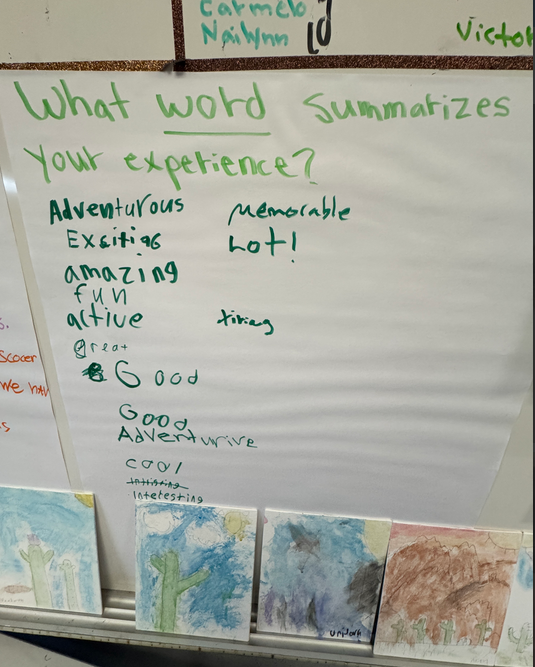 Carmelo
Nailynn
Victor
What word summarizes
your experience?
Adventurous
Memorable
Exsiting
hot!
amazing
fun
active
tiring
great
Good
Good
Adventurive
cool
Intetesting
s.
Soccer
we
s